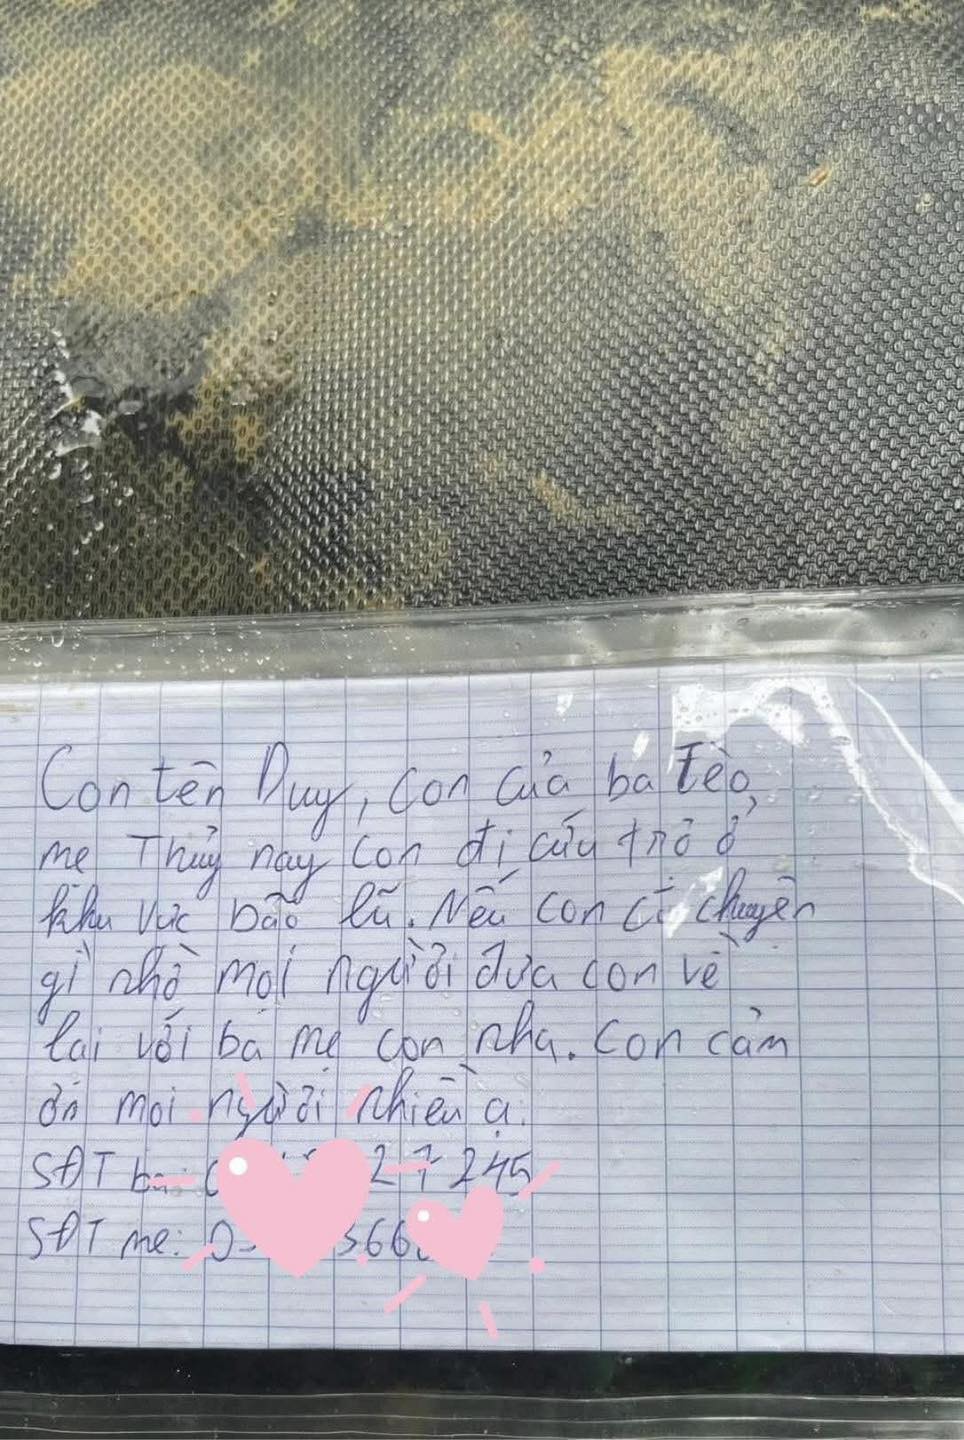 Con tên Duy, con của ba Tèo,
me Thủy nay con đi cứu trợ ở
khu vực bão lũ. Nếu con có chuyện
gì nhờ mọi người đưa con về
lại với ba mẹ con nha. Con cảm
ơn mọi người nhiều ạ.
SĐT ba: 27 245
SĐT mẹ: 0 366